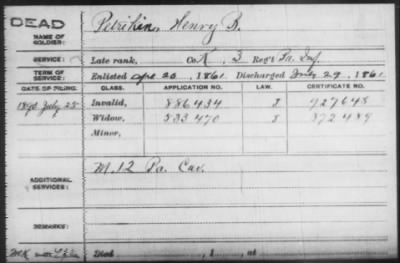 DEAD
NAME OF SOLDIER: Petrikin, Henry B.
SERVICE: Late rank, Co. K, 3 Reg't Pa. Inf.
TERM OF SERVICE: Enlisted Apr 20, 1861 Discharged July 29, 1861
DATE OF FILING. CLASS. APPLICATION NO. LAW. CERTIFICATE NO.
1890 July 28 Invalid, 886434 J 727648
Widow, 533470 J 372489
Minor,
ADDITIONAL SERVICES: M. 12 Pa. Cav.
REMARKS:
Died , 1 , at